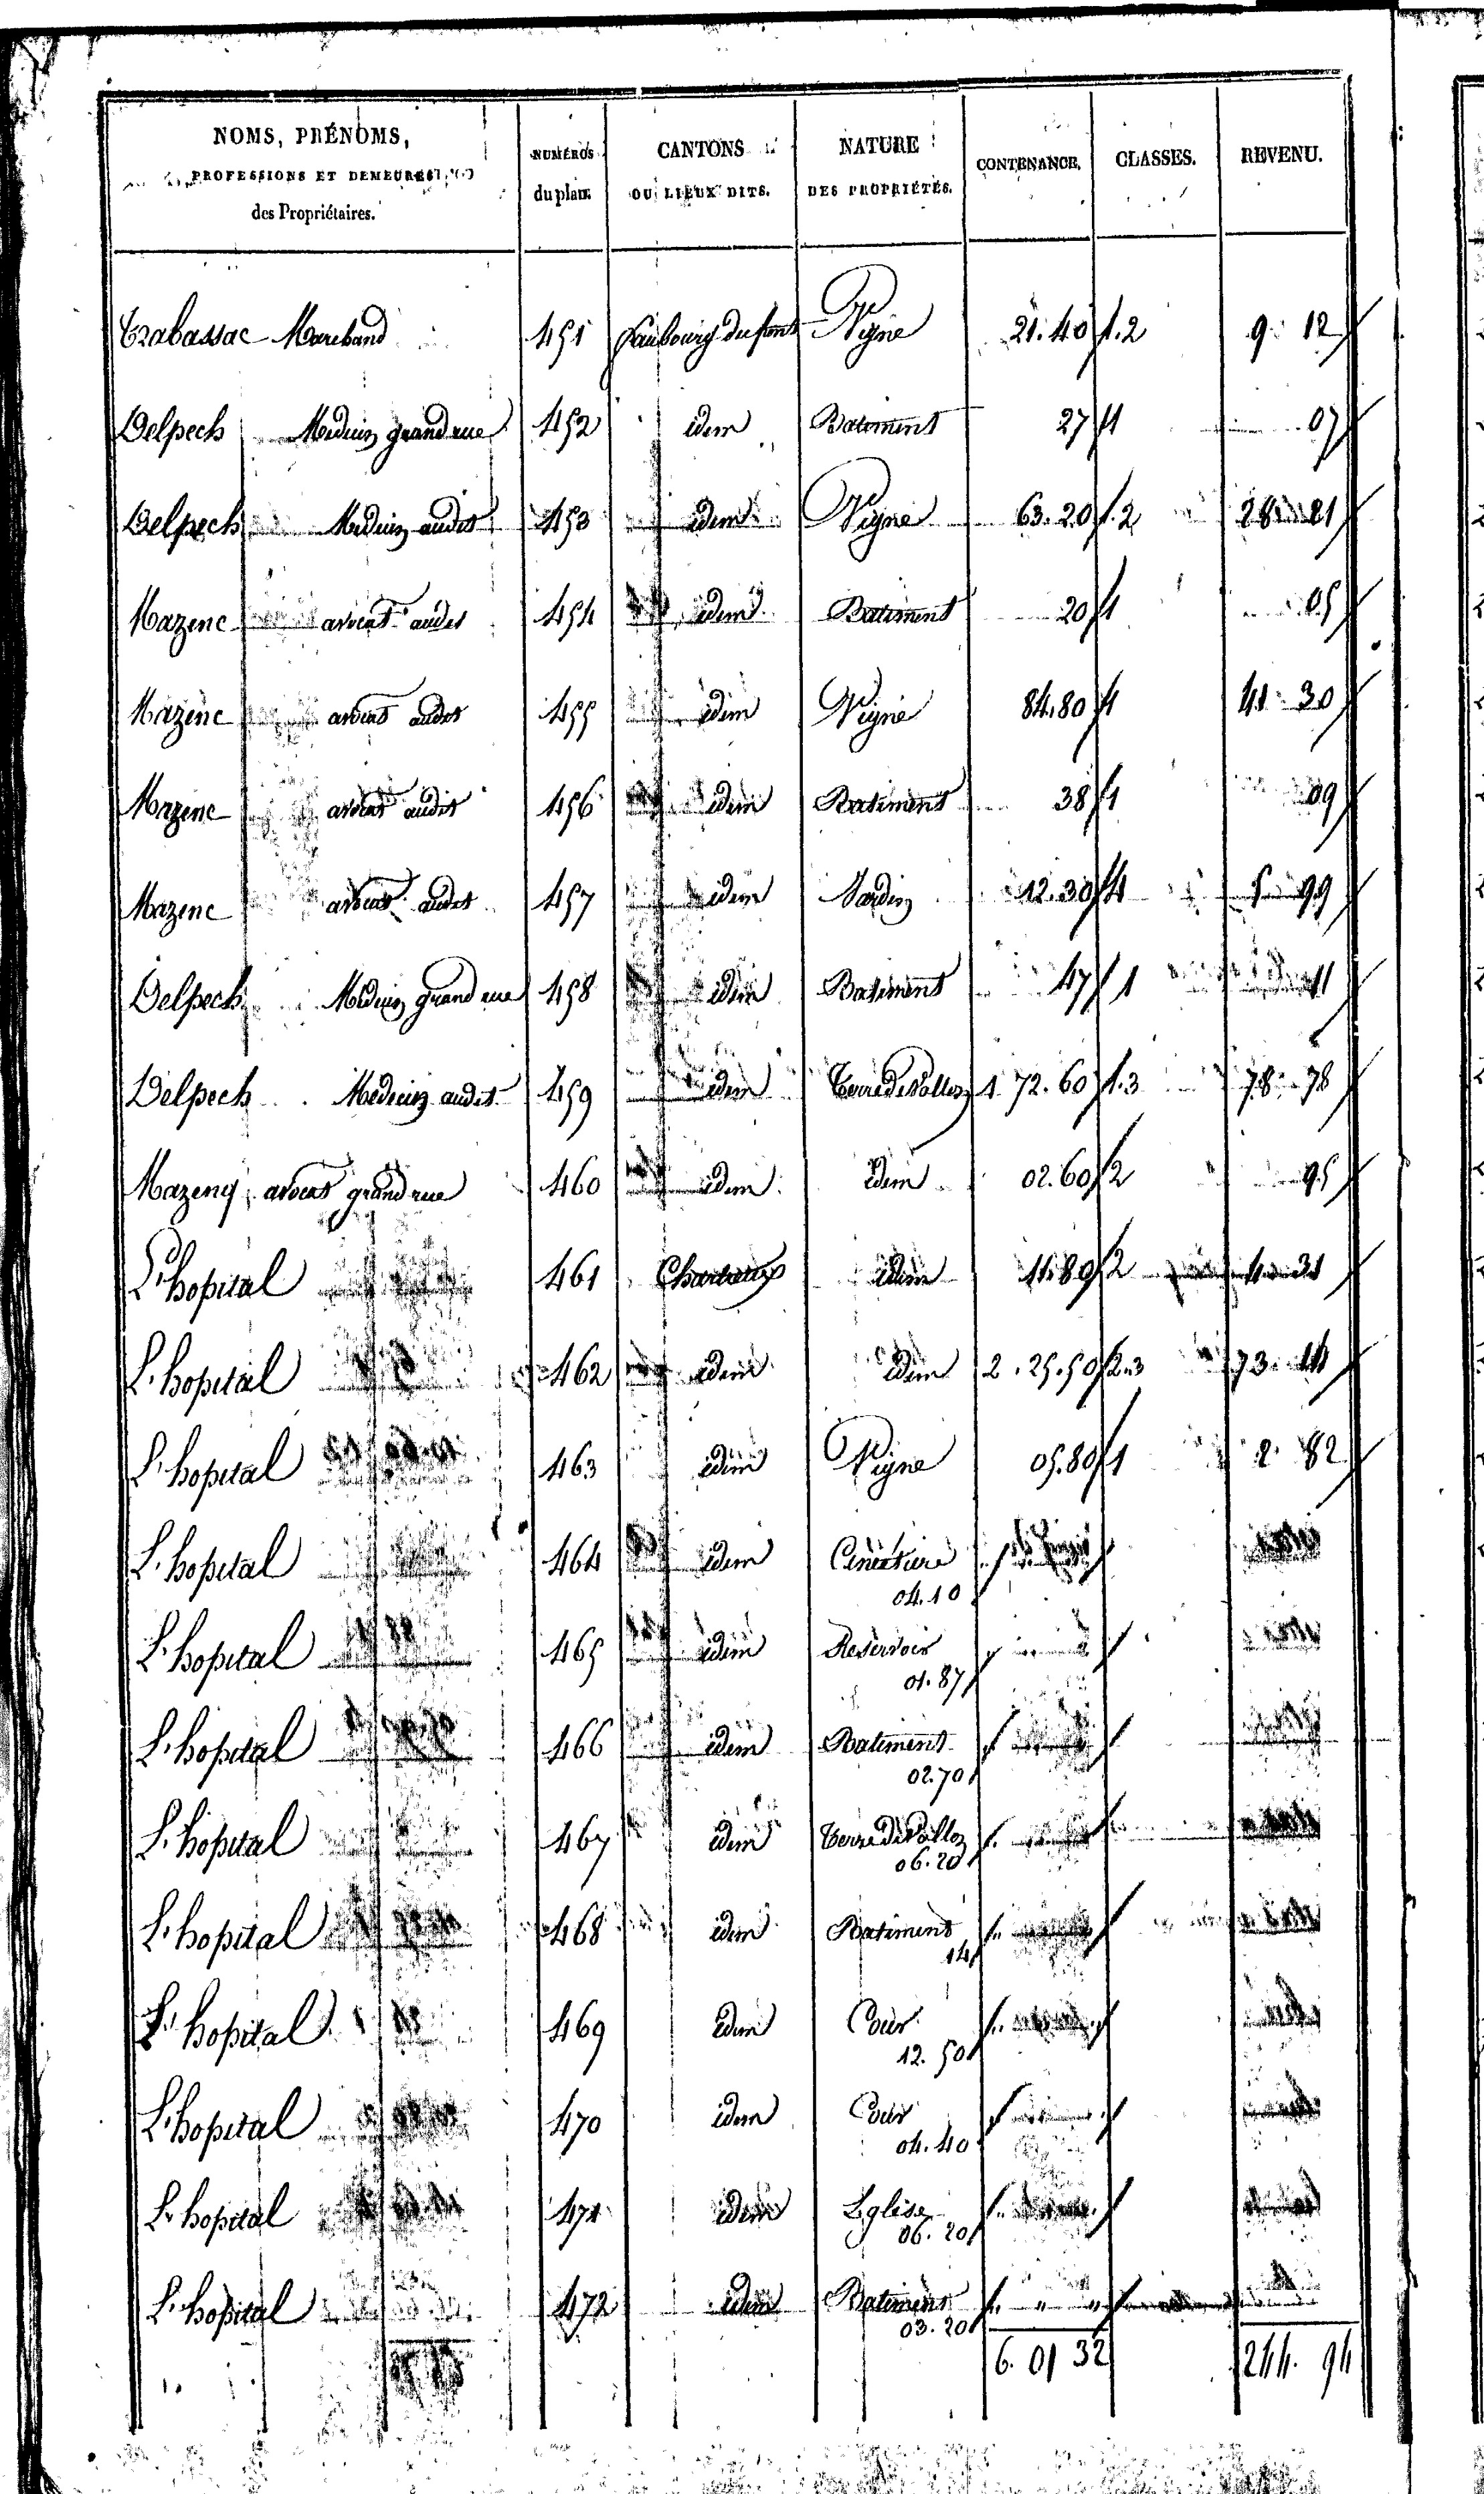 NOMS, PRÉNOMS, PROFESSIONS ET DEMEURES des Propriétaires. | NUMÉROS du plan. | CANTONS OU LIEUX DITS. | NATURE DES PROPRIÉTÉS. | CONTENANCE. | CLASSES. | REVENU.
Trabassac Marchand 451 faubourg du pont Vigne 21.40 1.2 9. 12
Delpech Medecin grand rue 452 idem Batiment 27 1 07
Delpech Medecin audit 453 idem Vigne 63.20 1.2 28 21
Mazenc avocat audit 454 idem Batiment 20 1 05
Mazenc avocat audit 455 idem Vigne 84.80 1 41 30
Mazenc avocat audit 456 idem Batiment 38 1 09
Mazenc avocat audit 457 idem Jardin 12.30 1 5 99
Delpech Medecin grand rue 458 idem Batiment 47 1 11
Delpech Medecin audit 459 idem 1 72.60 1.3 78 78
Mazenq avocat grand rue 460 idem idem 02.60 2 95
L'hopital 461 Chartreux idem 11.80 2 4 31
L'hopital 462 idem idem 2.25.50 2.3 73
L'hopital 463 idem Vigne 05.80 1 2 82
L'hopital 464 idem Cimetiere
04.10
L'hopital 465 idem Reservoir
01.87
L'hopital 466 idem Batiment
02.70
L'hopital 467 idem
06.20
L'hopital 468 idem Batiment
14
L'hopital 469 idem Cour
12.50
L'hopital 470 idem Cour
04.40
L'hopital 471 idem Eglise
06.20
L'hopital 472 idem Batiment
03.20
6. 01 32 244. 94